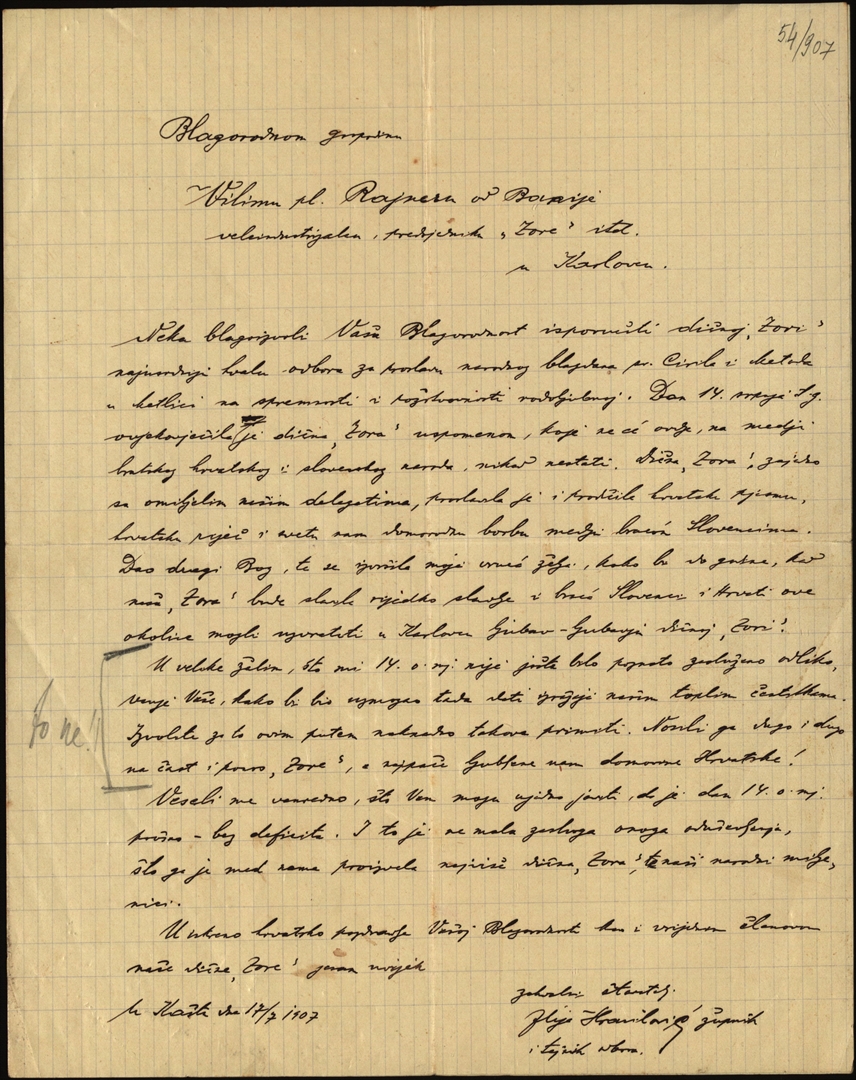 54/907
Blagorodnom gospodinu
Vilimu pl. Rajneru od Banije
veleindustrijalcu, predsjedniku „Zore“ itd.
u Karlovcu.
Neka blagoizvoli Vaša Blagorodnost isporučiti dičnoj „Zori“
najusrdniju hvalu odbora za proslavu narodnog blagdana sv. Cirila i Metoda
u Metlici na spremnosti i požrtvovnosti rodoljubnoj. Dan 14. srpnja t. g.
ovjekovječila je dična „Zora“ uspomenom, koja ne će ovdje, na medji
bratskog hrvatskog i slovenskog naroda, nikad nestati. Dična „Zora“, zajedno
sa omiljelim našim delegatima, proslavila je i pronila hrvatsku pjesmu,
hrvatsku riječ i svetu nam domorodnu borbu medju braćom Slovencima.
Dao dragi Bog, te se izvršila moja vruća želja, kako bi do godine, kad
naša „Zora“ bude slavila rijedko slavlje i braća Slovenci i Hrvati ove
okolice mogli uzvratiti u Karlovcu ljubav-ljubavlju dičnoj „Zori“.
U velike žalim, što mi 14. o. mj. nije jošte bilo poznato zasluženo odliko,
vanje Vaše, kako bi bio uzmogao tada dati izražaja našim toplim čestitkama.
Izvolite za to ovim putem naknadno takova primiti. Nosili ga dugo i dugo
na čast i ponos „Zore“, a najpače ljubljene nam domovine Hrvatske!
to ne!
Veseli me vanredno, što Vam mogu ujedno javiti, da je dan 14. o. mj.
prošao - bez deficita. I to je ne mala zasluga onoga oduševljenja,
što ga je med nama proizvela najviše dična „Zora“, te naši narodni milje,
nici.
Uz iskreno hrvatsko pozdravlje Vašoj Blagorodnosti kao i vrijednim članovom
naše dične „Zore“ jesam uvijek
zahvalni štovatelj
Ilija Hranilović župnik
i tajnik odbora.
U Kašti dne 17/7 1907